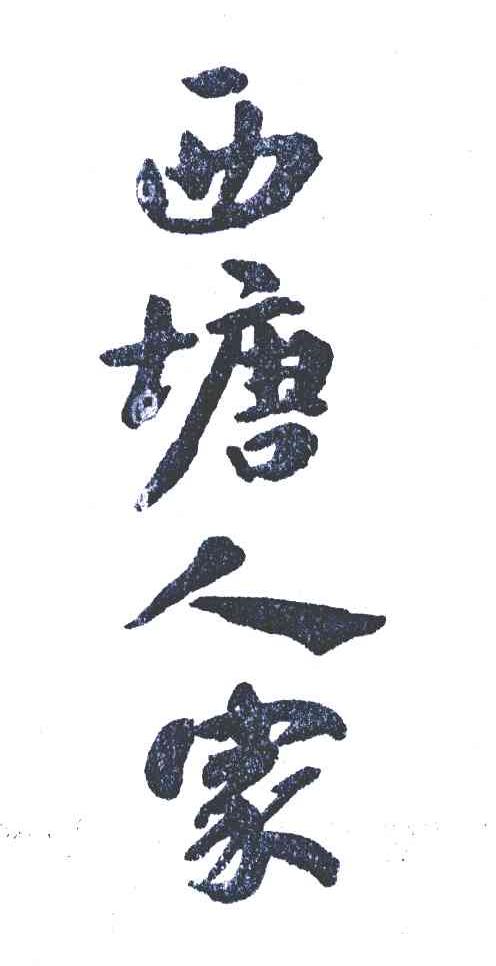 西塘人家